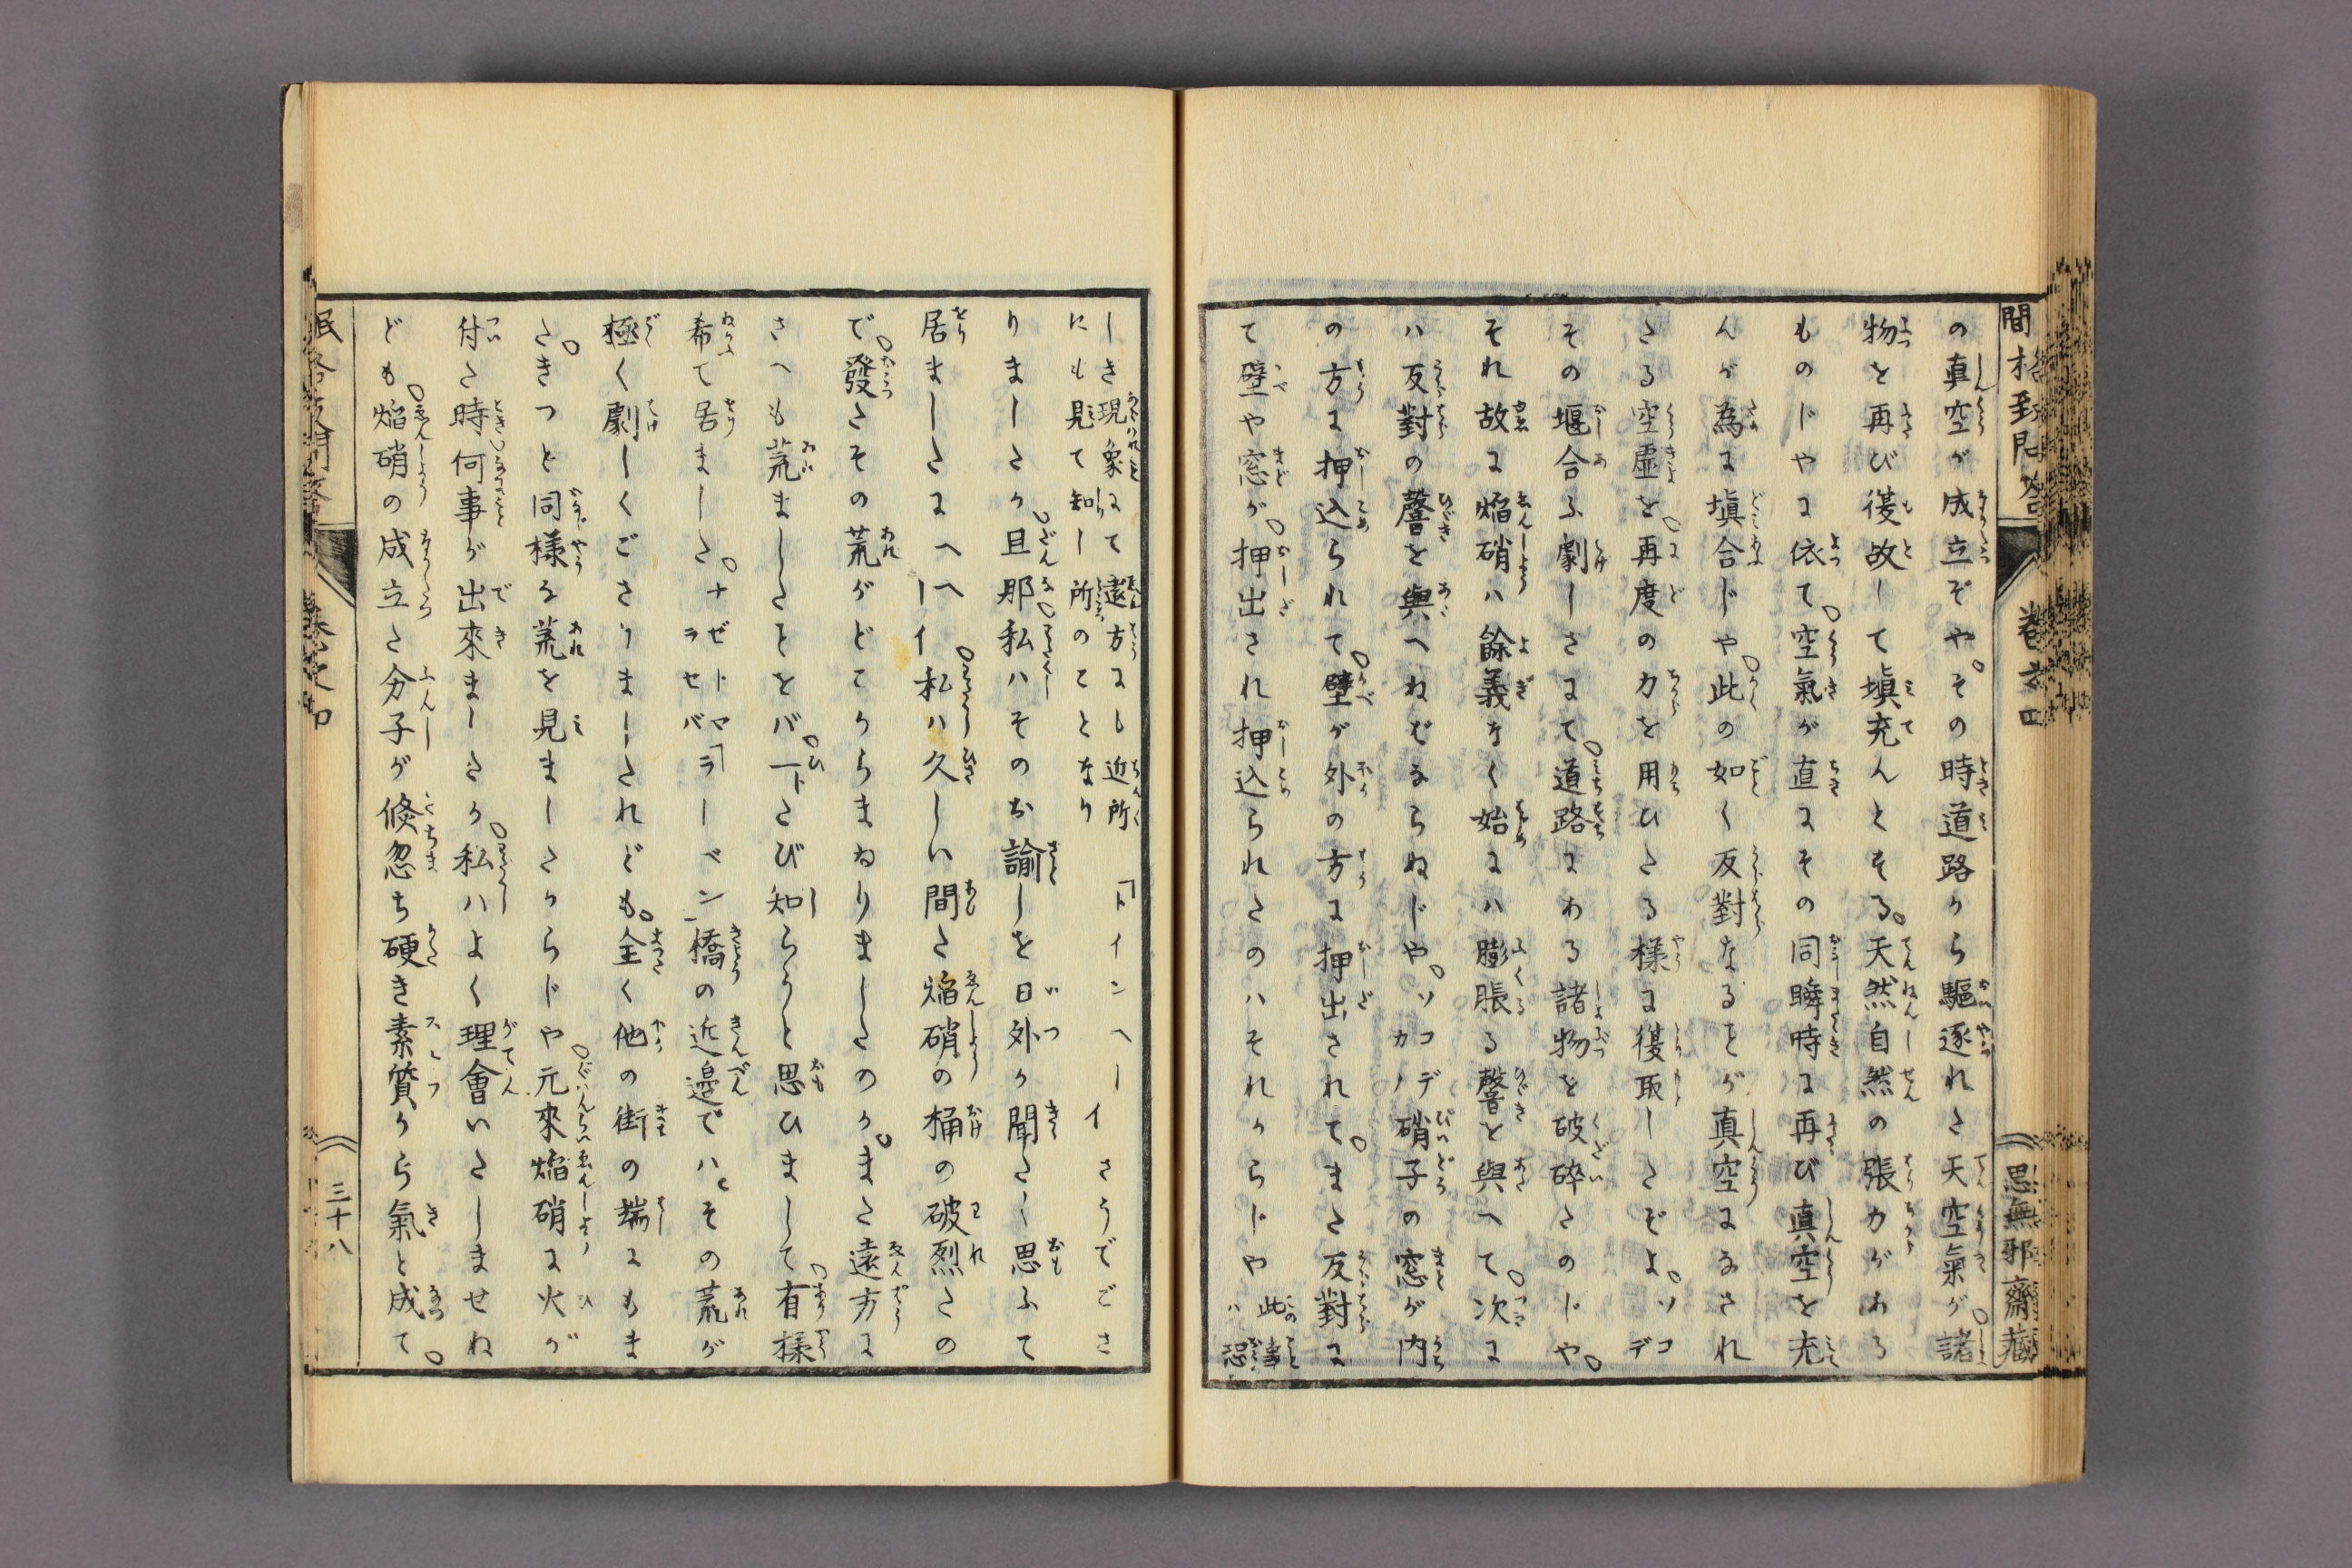 民格致問答 巻之四 思無邪齋藏
の真空が成立ぞや。その時道路から驅逐れた天空氣が。諸
物を再び復故して填充んとする。天然自然の張力がある
ものじやに依て。空氣が直にその同瞬時に再び真空を充
んが為に填合じや。此の如く反對なることが真空になされ
たる空虚を。再度の力を用ひたる様に復取したぞよ。ソコデ
その堰合ふ劇しさにて。道路にある諸物を破碎たのじや。
それ故に焔硝ハ餘義なく始にハ膨脹る響を與へて。次に
ハ反對の響を與へねばならねじや。ソコデカノ硝子の窓が内
の方に押込られて。壁が外の方に押出されて。また反對に
て壁や窓が。押出され押込られたのハそれからじや 此事ハ恐
しき現象にて遠方にも近所
にも見て知し所のことなり 「トインヘーイ さうでござ
りましたか。旦那。私ハそのお諭しを日外か聞たく思ふて
居ましたにへヘーイ。私ハ久しい間た焔硝の桶の破烈たの
で。發たその荒がどこからまゐりましたのか。また遠方に
さへも荒ましたことをバ。一トたび知らうと思ひまして。有様
希て居ました。ナゼトマラセバ「ラーベン」橋の近邊でハ。その荒が
極く劇しくござりましたれども。全く他の街の端にもま
た。きつと同様な荒を見ましたからじや。元來焔硝に火が
付た時何事が出來ましたか。私ハよく理會いたしませね
ども。焔硝の成立た分子が倏忽ち硬き素質から氣と成て。
三十八